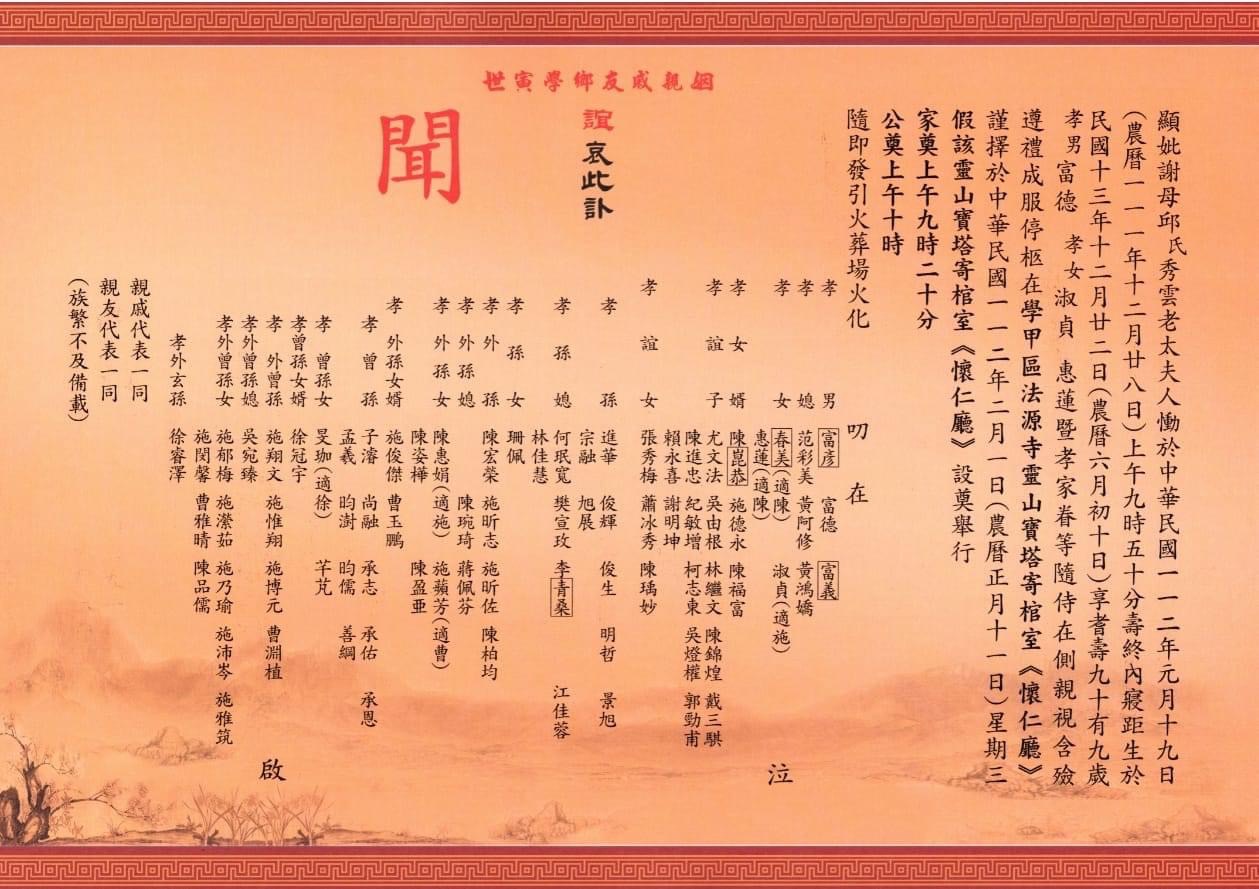 顯妣謝母邱氏秀雲老太夫人慟於中華民國一一二年元月十九日
(農曆一一一年十二月廿八日)上午九時五十分壽終內寢距生於
民國十三年十二月廿二日(農曆六月初十日)享耆壽九十有九歲
孝男富德 孝女淑貞 惠蓮暨孝家眷等隨侍在側親視含殮
遵禮成服停柩在學甲區法源寺靈山寶塔寄棺室《懷仁廳》
謹擇於中華民國一一二年二月一日(農曆正月十一日)星期三
假該靈山寶塔寄棺室《懷仁廳》設奠舉行
家奠上午九時二十分
公奠上午十時
隨即發引火葬場火化
叨在
姻親戚友鄉學寅世
誼哀此訃
聞
孝男 富彥 富德 富義
孝媳 范彩美 黃阿修 黃鴻嬌
孝女 春美(適陳) 淑貞(適施)
惠蓮(適陳)
孝女婿 陳崑恭 施德永 陳福富
孝誼子 尤文法 吳由根 林繼文 陳錦煌 戴三騏
陳進忠 紀敏增 柯志東 吳燈權 郭勁甫
賴永喜 謝明坤
孝誼女 張秀梅 蕭冰秀 陳瑀妙
孝孫 進華 俊輝 俊生 明哲 景旭
宗融 旭展
孝孫媳 何珉寬 樊宣玫 李青桑 江佳蓉
林佳慧
孝孫女 珊佩
孝外孫 陳宏榮 施昕志 施昕佐 陳柏均
孝外孫媳 陳琬琦 蔣佩芬
孝外孫女 陳惠娟(適施) 施蘋芳(適曹)
陳姿樺 陳盈亜
孝外孫女婿 施俊傑 曹玉鵬
孝曾孫 子濬 尚融 承志 承佑 承恩
孟羲 昀澍 昀儒 善綱
孝曾孫女 旻珈(適徐) 芊芃
孝曾孫女婿 徐冠宇
孝外曾孫 施翔文 施惟翔 施博元 曹淵植
孝外曾孫媳 吳宛臻
孝外曾孫女 施郁梅 施瀠茹 施乃瑜 施沛岑 施雅筑
施閔馨 曹雅晴 陳品儒
孝外玄孫 徐睿澤
泣
啟
親戚代表一同
親友代表一同
(族繁不及備載)